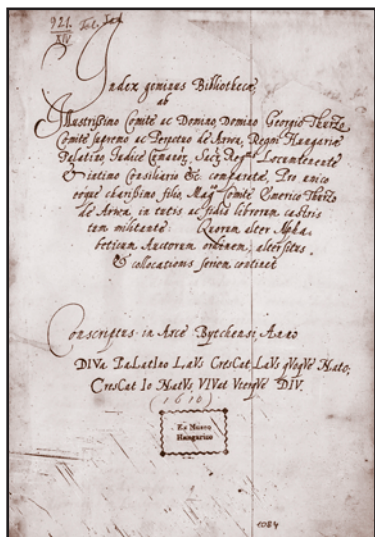 921. Fol. Lat.
XIV
Index geminus Bibliothecæ
ab
Illustrißimo Comite ac Domino, Domino Georgio Thurzo
Comite supremo ac Perpetuo de Arwa, Regni Hungariæ
Palatino, Judice Comanor, Locumtenente
& intimo Consiliario &c. comparatæ, Pro unico
eoque charißimo filio, Comite Emerico Thurzo
de Arwa, in tutis ac fidis librorum castris
tam militante: Quorum alter Alpha-
beticum Auctorum ordinem, alter situs
& collocationis seriem continet
Conscriptus in Arce Bytchensi, Anno
DIVa PaLatIno LaVs CresCat, LaVs qVoqVe Nato;
CresCat Io NatVs, VIVat VterqVe DIV.
(1610)
Ex Museo
Hungarico
1084